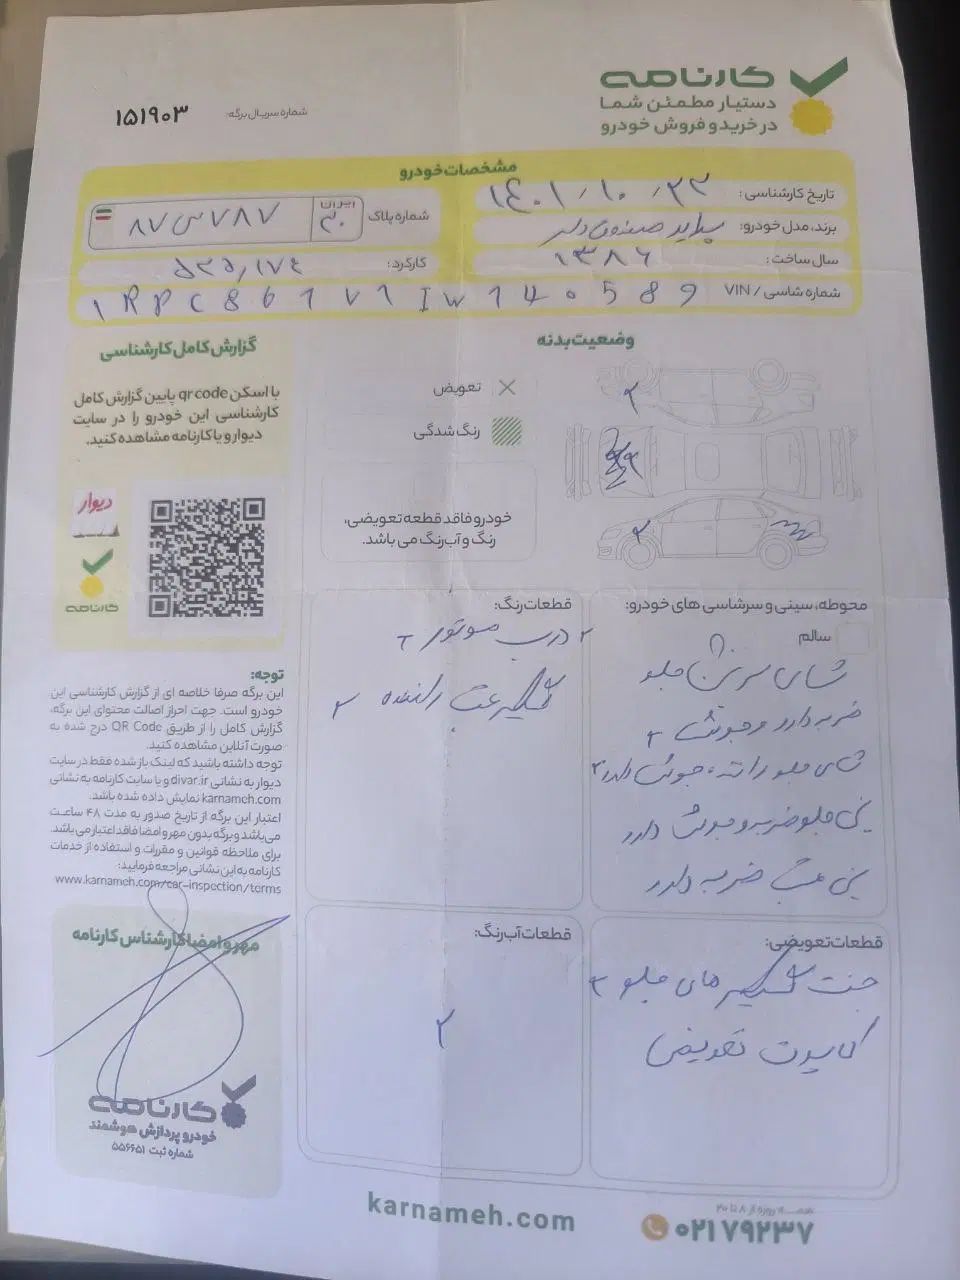 کارنامه
دستیار مطمئن شما
در خرید و فروش خودرو
شماره سریال برگه:
۱۵۱۹۰۳
مشخصات خودرو
تاریخ کارشناسی: ۱۴۰۱/۱۰/۲۲
شماره پلاک
ایران
۳۰
۸۷ س ۷۸۷
برند، مدل خودرو: پراید صندوق دار
سال ساخت: ۱۳۸۶
کارکرد: ۵۲۵,۱۷۴
شماره شاسی / VIN
وضعیت بدنه
تعویض
رنگ شدگی
خودرو فاقد قطعه تعویضی،
رنگ و آب‌رنگ می باشد.
گزارش کامل کارشناسی
با اسکن qr code پایین گزارش کامل
کارشناسی این خودرو را در سایت
دیوار و یا کارنامه مشاهده کنید.
دیوار
کارنامه
محوطه، سینی و سرشاسی های خودرو:
سالم
ضربه دارد و جوش
سینی جلو ضربه و جوش دارد
سینی عقب ضربه دارد
قطعات رنگ:
درب موتور
گلگیر عقب راننده
قطعات تعویضی:
جفت گلگیر های جلو
کاپوت تعویض
قطعات آب‌رنگ:
توجه:
این برگه صرفا خلاصه ای از گزارش کارشناسی این
خودرو است. جهت احراز اصالت محتوای این برگه،
گزارش کامل را از طریق QR Code درج شده به
صورت آنلاین مشاهده کنید.
توجه داشته باشید که لینک باز شده فقط در سایت
دیوار به نشانی divar.ir و یا سایت کارنامه به نشانی
karnameh.com نمایش داده شده باشد.
اعتبار این برگه از تاریخ صدور به مدت ۴۸ ساعت
می‌باشد و برگه بدون مهر و امضا فاقد اعتبار می‌باشد.
برای ملاحظه قوانین و مقررات و استفاده از خدمات
کارنامه به این نشانی مراجعه فرمایید:
www.karnameh.com/car-inspection/terms
مهر و امضا کارشناس کارنامه
کارنامه
خودرو پردازش هوشمند
شماره ثبت ۵۵۶۶۵۱
karnameh.com
همه روزه از ۸ تا ۲۰
۰۲۱ ۷۹۲۳۷